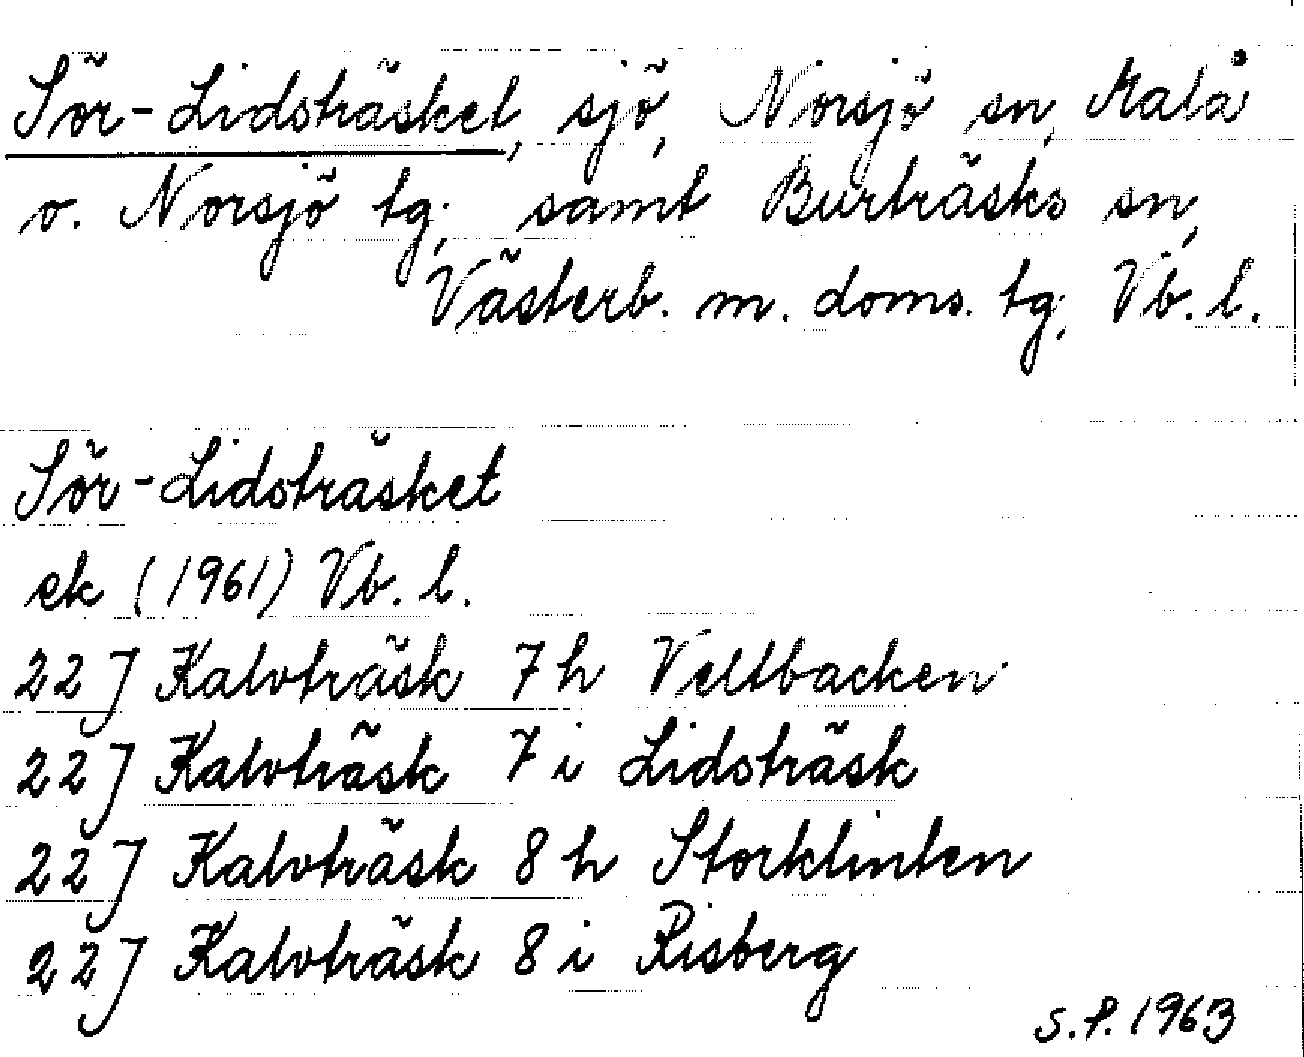 Sör-Lidsträsket, sjö, Norsjö sn, Malå
o. Norsjö tg, samt Burträsks sn,
Västerb. m. doms. tg, Vb. l.
Sör-Lidsträsket
ek (1961) Vb. l.
22 J Kalvträsk 7 h Veltbacken
22 J Kalvträsk 7 i Lidsträsk
22 J Kalvträsk 8 h Storklinten
22 J Kalvträsk 8 i Risberg
S.P. 1963